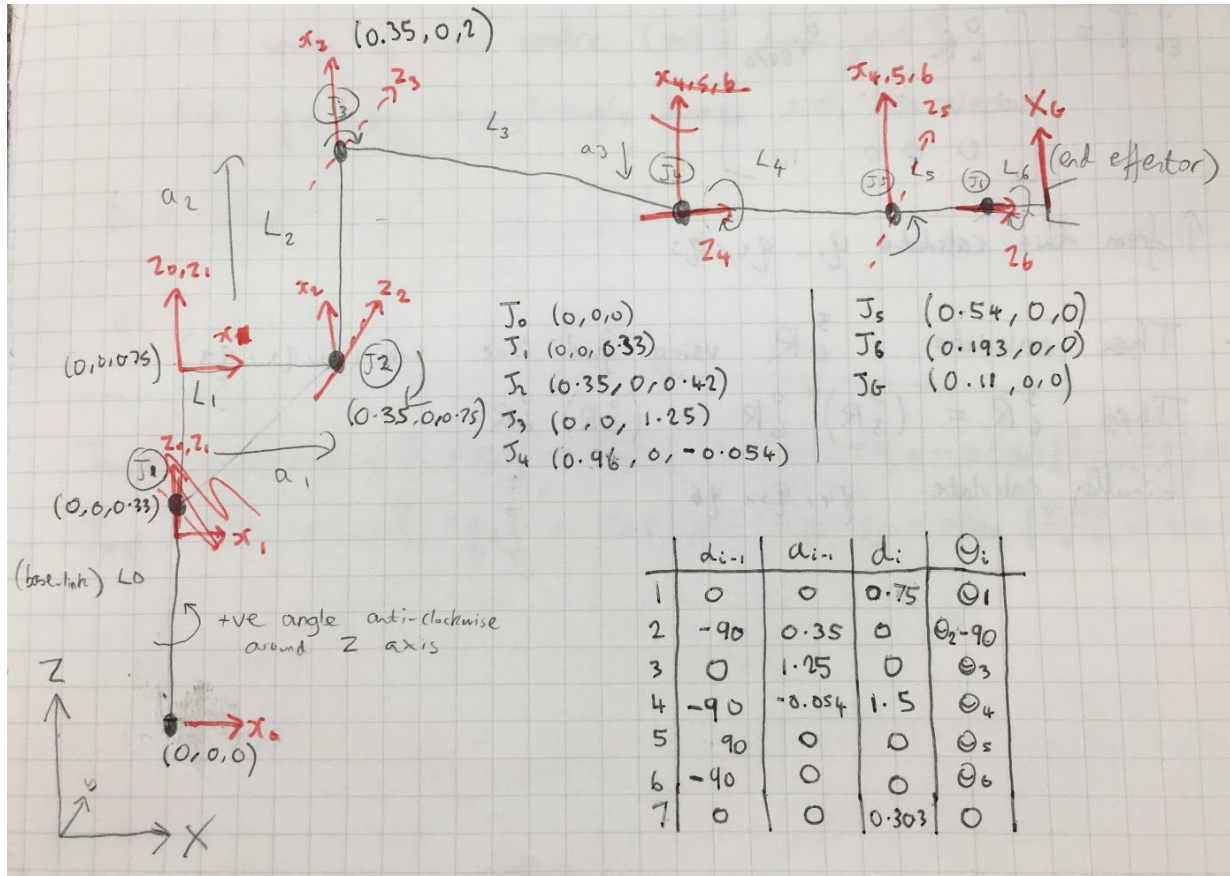 x₃ (0.35, 0, 2)
z₃
J3
L₃
a₂
L₂
x₄,₅,₆
a₃ ↓
J4
L₄
Z₄
x₄,₅,6
z₅
J5
L₅
X_G
(end effector)
J6
L₆
z₆
z₀,z₁
x₂
z₂
(0,0,0.75)
L₁
J2
(0.35,0,0.75)
a₁
z₀,z₁
J1
(0,0,0.33)
x₁
(base-link) L0
+ve angle anti-clockwise
around Z axis
Z
X
x₀
(0,0,0)
J₀ (0,0,0)
J₁ (0,0,0.33)
J₂ (0.35,0,0.42)
J₃ (0, 0, 1.25)
J₄ (0.96, 0, -0.054)
J₅ (0.54, 0, 0)
J6 (0.193, 0, 0)
JG (0.11, 0, 0)
αi-1 ai-1 di θi
1 0 0 0.75 θ1
2 -90 0.35 0 θ₂-90
3 0 1.25 0 θ₃
4 -90 -0.054 1.5 θ₄
5 90 0 0 θ₅
6 -90 0 0 θ₆
7 0 0 0.303 0